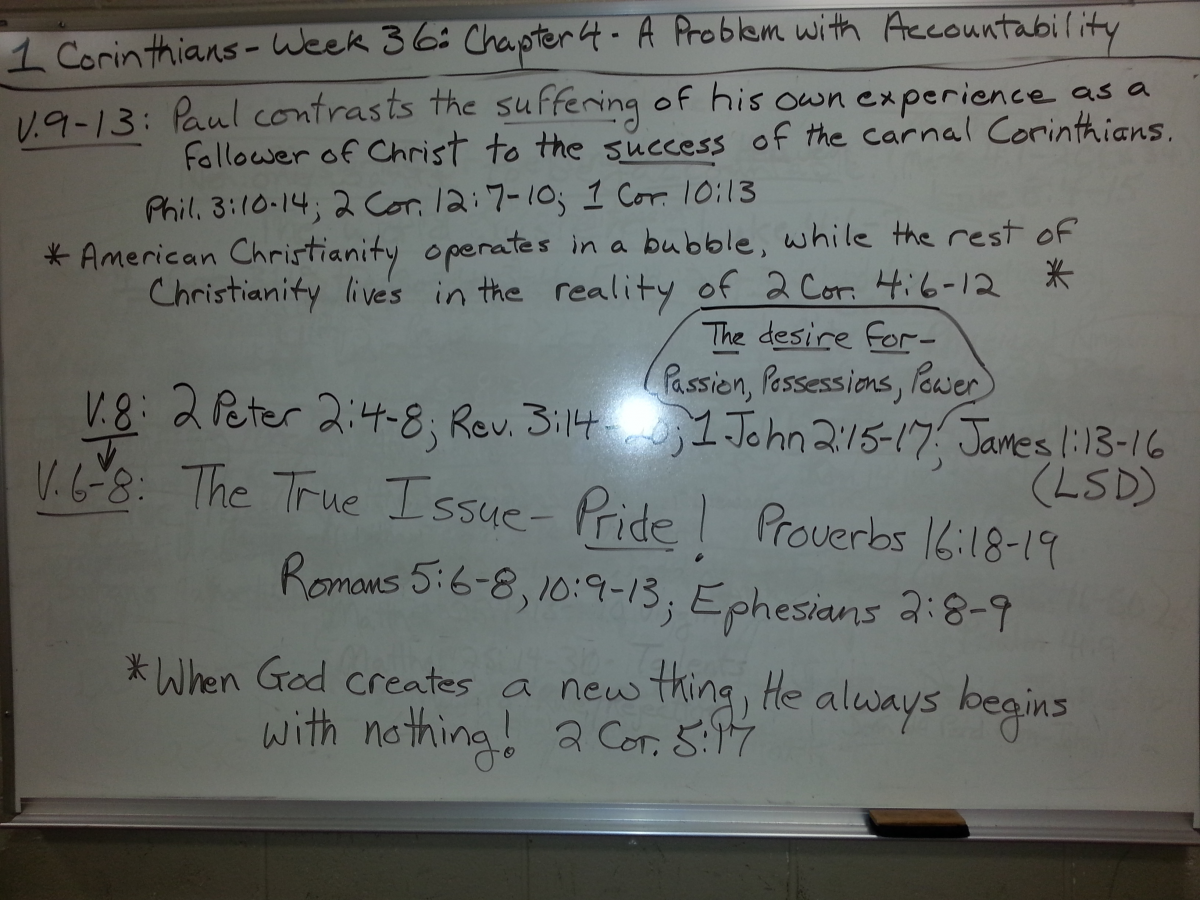 1 Corinthians - Week 36: Chapter 4 - A Problem with Accountability
V.9-13: Paul contrasts the suffering of his own experience as a
follower of Christ to the success of the carnal Corinthians.
Phil. 3:10-14; 2 Cor. 12:7-10; 1 Cor. 10:13
* American Christianity operates in a bubble, while the rest of
Christianity lives in the reality of 2 Cor. 4:6-12 *
The desire for-
Passion, Possessions, Power
V.8: 2 Peter 2:4-8; Rev. 3:14- ; 1 John 2:15-17; James 1:13-16
(LSD)
V.6-8: The True Issue - Pride! Proverbs 16:18-19
Romans 5:6-8, 10:9-13; Ephesians 2:8-9
* When God creates a new thing, He always begins
with nothing! 2 Cor. 5:17